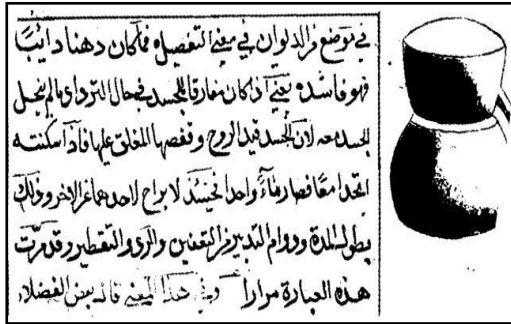 في موضع من الديوان في معنى التفصيل فما كان دهنا دائبا
فهو فاسده يعني اذا كان مفارقا للجسد في حال الترداد ما لم ينحل
الجسد معه لان الجسد قيد الروح وقفصها المغلق عليها فاذا سكنته
اتحدا معا فصار ماء واحدا فحينئذ لا براح لاحدهما عن الاخر وذلك
بطول المدة ودوام التدبير من التعفين والتقطير وقد مرت
هذه العبارة مرارا وفي هذا المعنى قال بعض الفضلاء